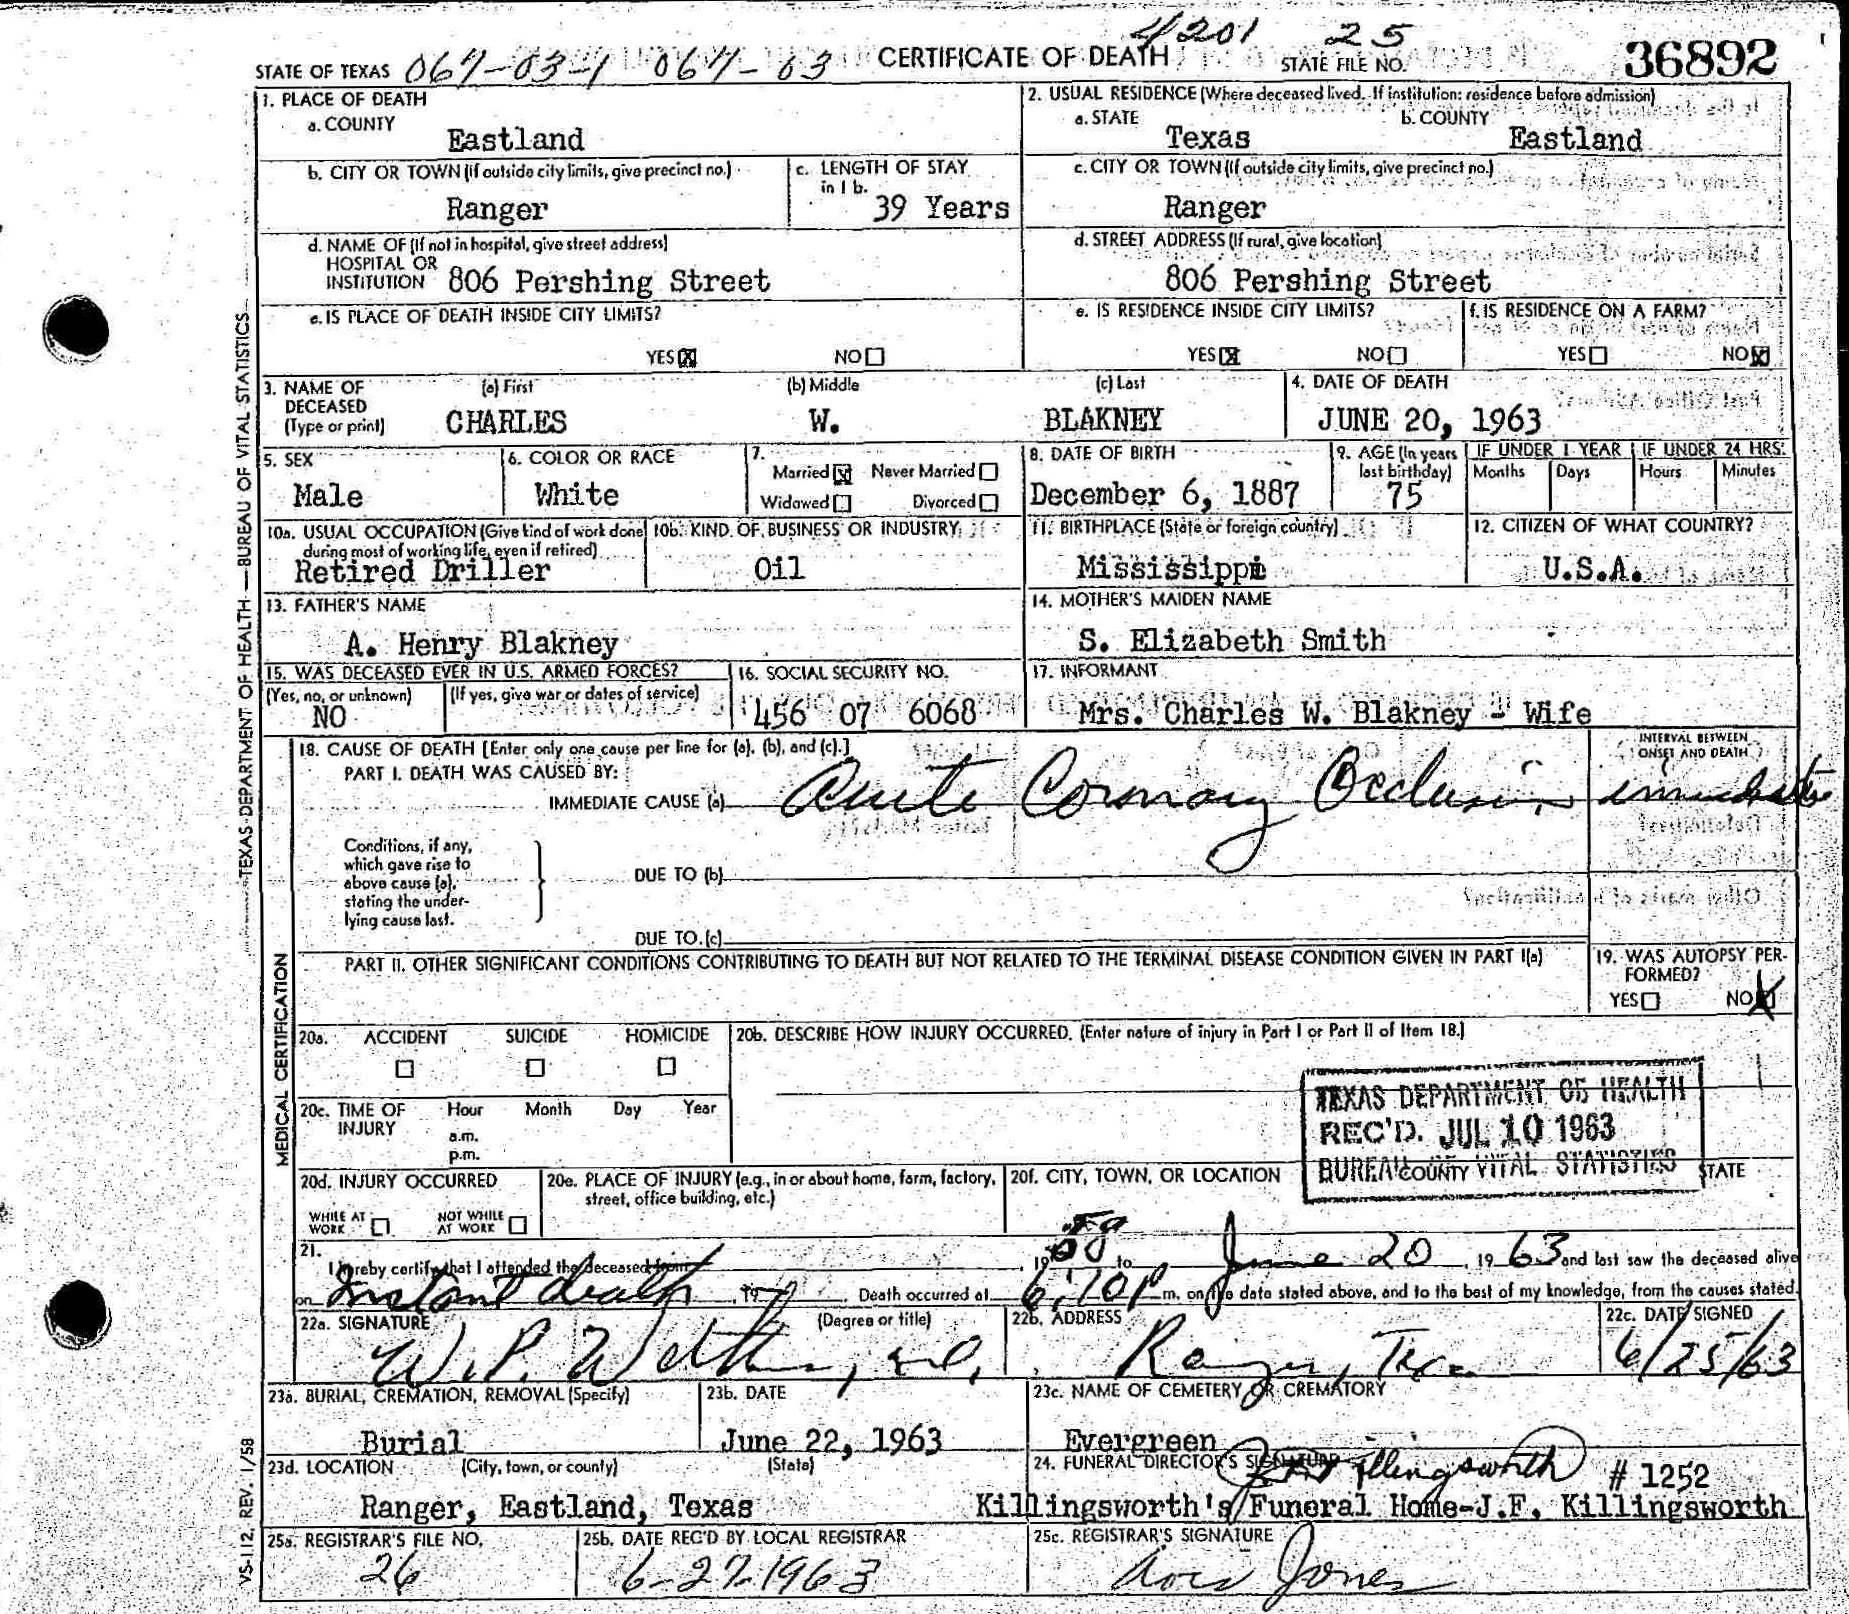 4201 25
STATE OF TEXAS 067-03-1 067-03 CERTIFICATE OF DEATH STATE FILE NO. 36892
1. PLACE OF DEATH
a. COUNTY
Eastland
2. USUAL RESIDENCE (Where deceased lived. If institution: residence before admission)
a. STATE b. COUNTY
Texas Eastland
b. CITY OR TOWN (If outside city limits, give precinct no.)
Ranger
c. LENGTH OF STAY
in 1 b.
39 Years
c. CITY OR TOWN (If outside city limits, give precinct no.)
Ranger
d. NAME OF (If not in hospital, give street address)
HOSPITAL OR
INSTITUTION 806 Pershing Street
d. STREET ADDRESS (If rural, give location)
806 Pershing Street
e. IS PLACE OF DEATH INSIDE CITY LIMITS?
YES X NO
e. IS RESIDENCE INSIDE CITY LIMITS?
YES X NO
f. IS RESIDENCE ON A FARM?
YES NO X
3. NAME OF
DECEASED
(Type or print)
(a) First (b) Middle (c) Last
CHARLES W. BLAKNEY
4. DATE OF DEATH
JUNE 20, 1963
5. SEX
Male
6. COLOR OR RACE
White
7.
Married X Never Married
Widowed Divorced
8. DATE OF BIRTH
December 6, 1887
9. AGE (In years
last birthday)
75
IF UNDER 1 YEAR IF UNDER 24 HRS.
Months Days Hours Minutes
10a. USUAL OCCUPATION (Give kind of work done
during most of working life, even if retired)
Retired Driller
10b. KIND OF BUSINESS OR INDUSTRY
Oil
11. BIRTHPLACE (State or foreign country)
Mississippi
12. CITIZEN OF WHAT COUNTRY?
U.S.A.
13. FATHER'S NAME
A. Henry Blakney
14. MOTHER'S MAIDEN NAME
S. Elizabeth Smith
15. WAS DECEASED EVER IN U.S. ARMED FORCES?
(Yes, no, or unknown) (If yes, give war or dates of service)
NO
16. SOCIAL SECURITY NO.
456 07 6068
17. INFORMANT
Mrs. Charles W. Blakney - Wife
18. CAUSE OF DEATH [Enter only one cause per line for (a), (b), and (c).]
PART I. DEATH WAS CAUSED BY:
INTERVAL BETWEEN
ONSET AND DEATH
IMMEDIATE CAUSE (a) Acute Coronary Occlusion immediate
Conditions, if any,
which gave rise to
above cause (a),
stating the under-
lying cause last.
DUE TO (b)
DUE TO (c)
PART II. OTHER SIGNIFICANT CONDITIONS CONTRIBUTING TO DEATH BUT NOT RELATED TO THE TERMINAL DISEASE CONDITION GIVEN IN PART I(a)
19. WAS AUTOPSY PER-
FORMED?
YES NO X
20a. ACCIDENT SUICIDE HOMICIDE
20b. DESCRIBE HOW INJURY OCCURRED. (Enter nature of injury in Part I or Part II of Item 18.)
TEXAS DEPARTMENT OF HEALTH
REC'D. JUL 10 1963
BUREAU OF VITAL STATISTICS
20c. TIME OF
INJURY
Hour Month Day Year
a.m.
p.m.
20d. INJURY OCCURRED
WHILE AT
WORK
NOT WHILE
AT WORK
20e. PLACE OF INJURY (e.g., in or about home, farm, factory,
street, office building, etc.)
20f. CITY, TOWN, OR LOCATION COUNTY STATE
21.
I hereby certify that I attended the deceased from , 19 58 to June 20 , 19 63 and last saw the deceased alive
on Instant death , 19 . Death occurred at 6:10 P m, on the date stated above, and to the best of my knowledge, from the causes stated.
22a. SIGNATURE (Degree or title)
W.P. M.D.
22b. ADDRESS
Ranger, Tex
22c. DATE SIGNED
6/25/63
23a. BURIAL, CREMATION, REMOVAL (Specify)
Burial
23b. DATE
June 22, 1963
23c. NAME OF CEMETERY OR CREMATORY
Evergreen
23d. LOCATION (City, town, or county) (State)
Ranger, Eastland, Texas
24. FUNERAL DIRECTOR'S SIGNATURE Killingsworth # 1252
Killingsworth's Funeral Home-J.F. Killingsworth
25a. REGISTRAR'S FILE NO.
26
25b. DATE REC'D BY LOCAL REGISTRAR
6-27-1963
25c. REGISTRAR'S SIGNATURE
Jones
TEXAS DEPARTMENT OF HEALTH — BUREAU OF VITAL STATISTICS
MEDICAL CERTIFICATION
VS-112. REV. 1/58